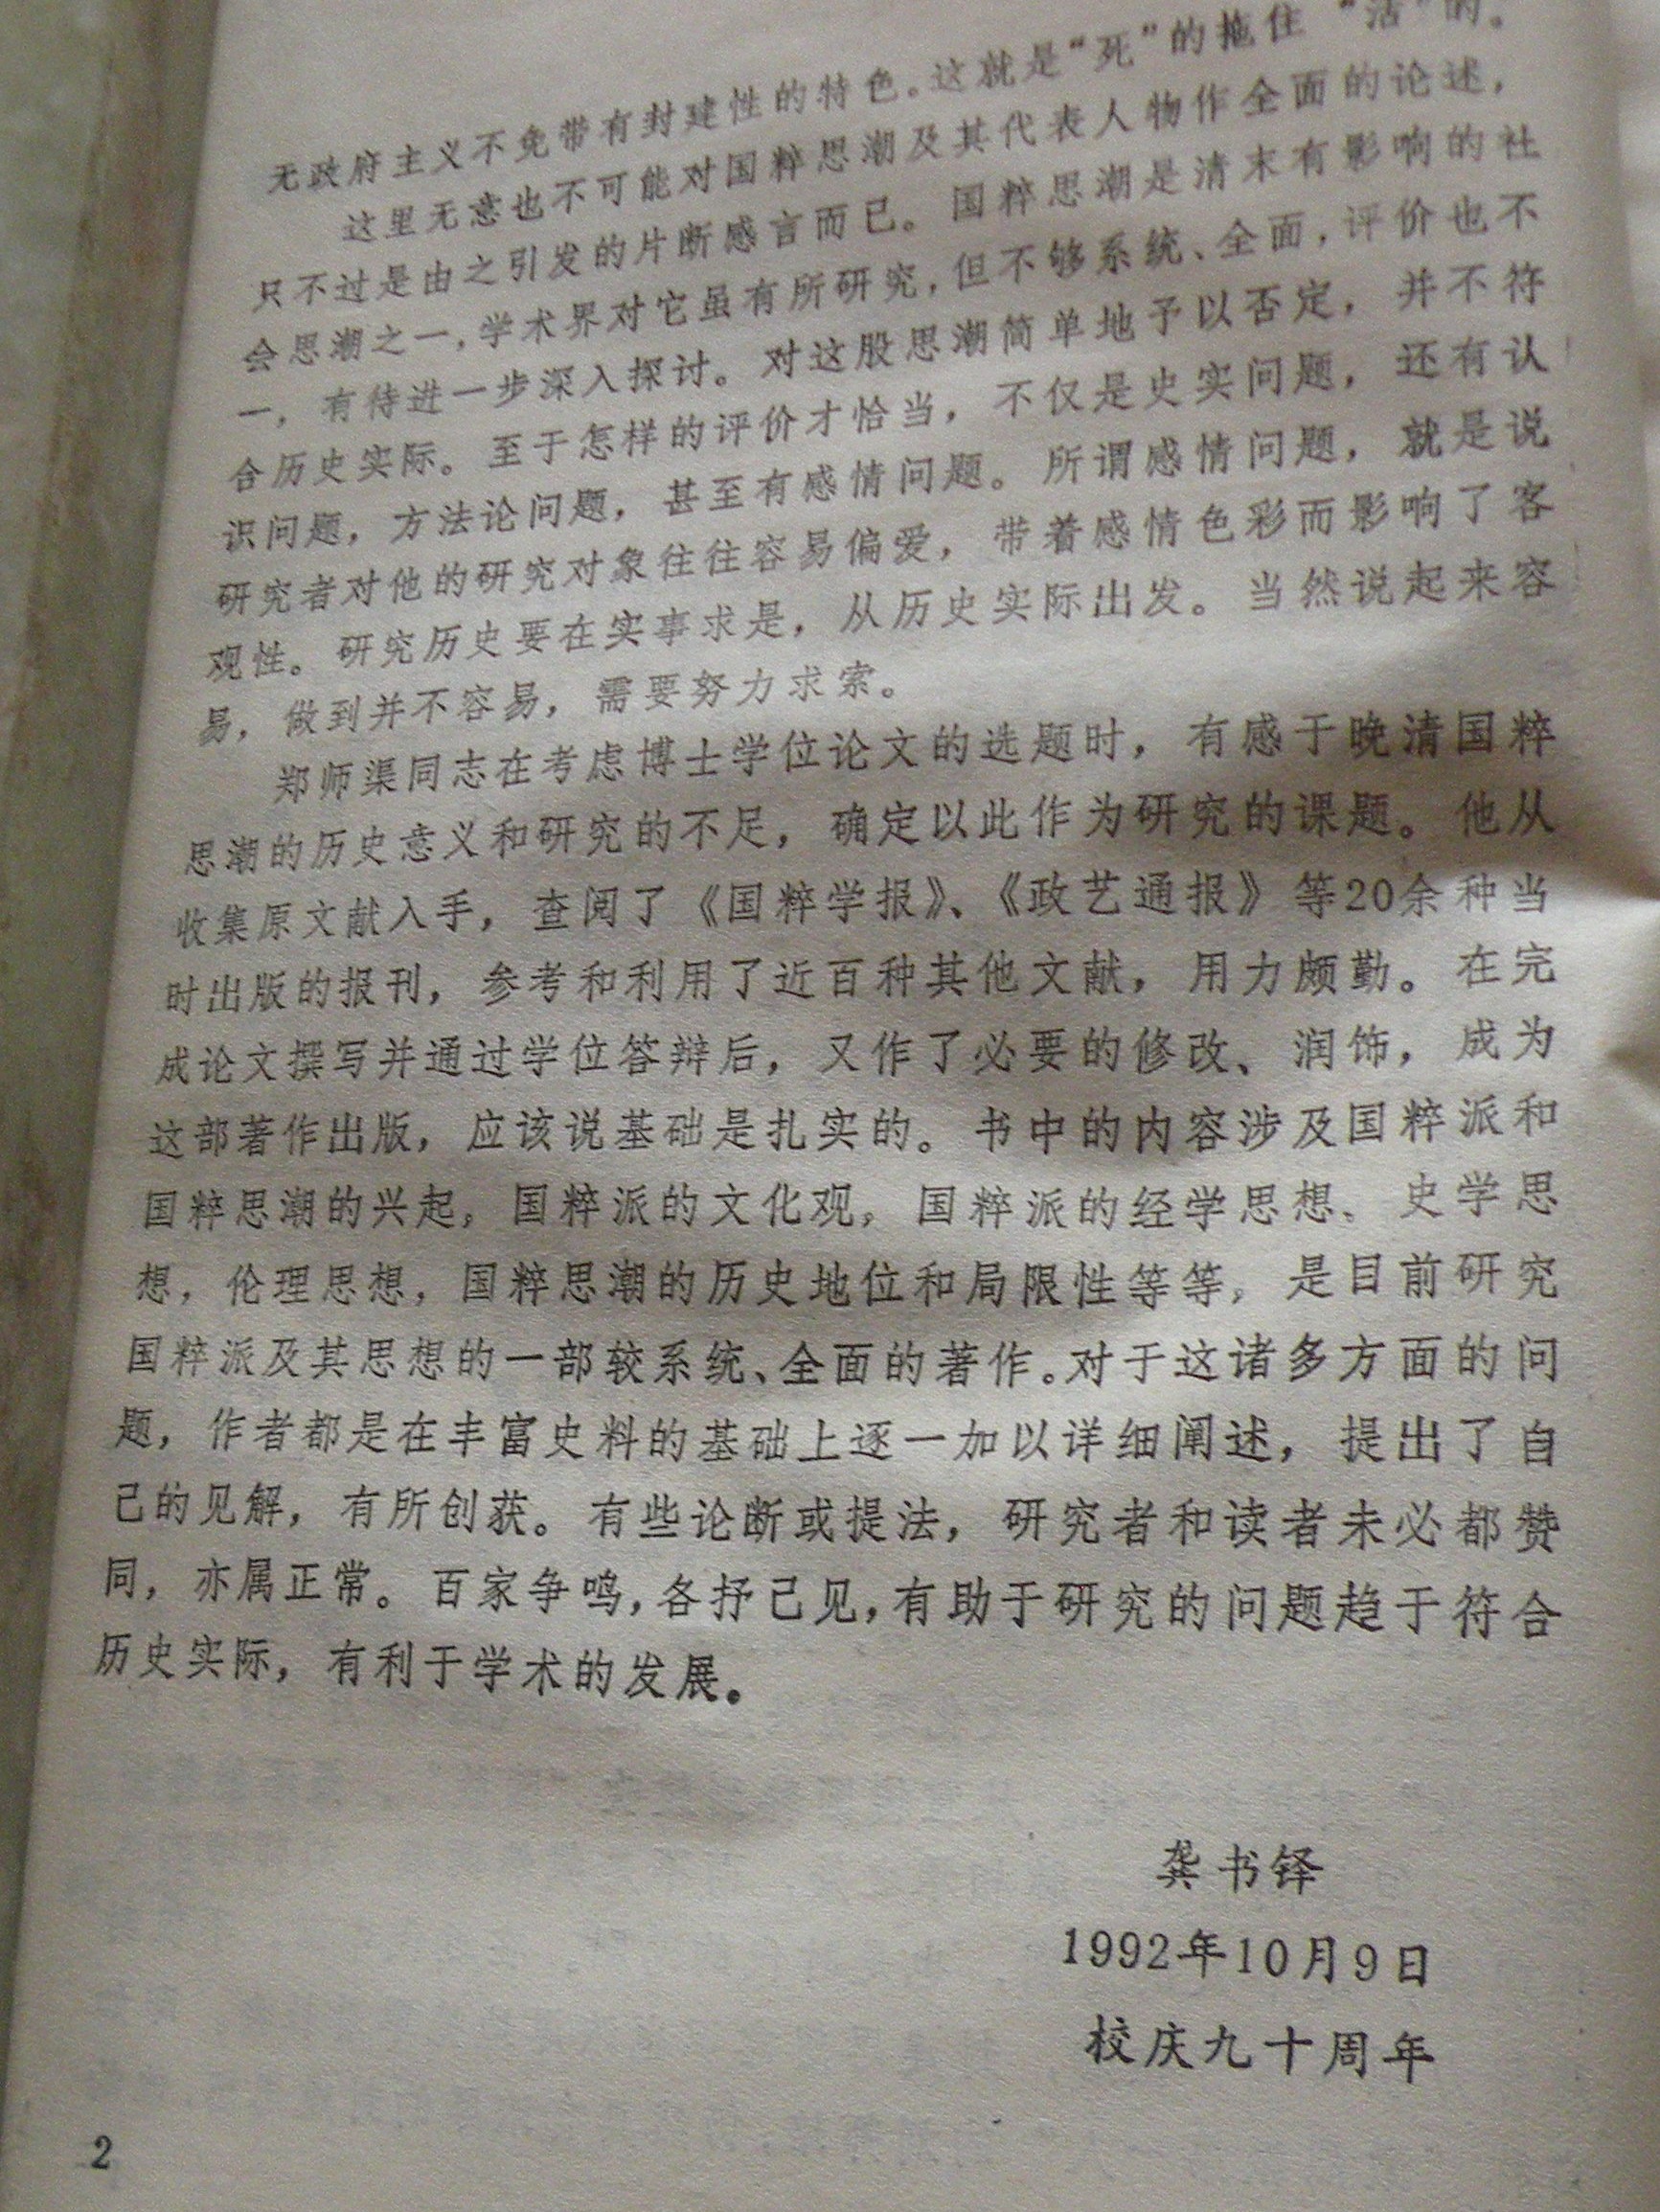 无政府主义不免带有封建性的特色。这就是“死”的拖住“活”的。
这里无意也不可能对国粹思潮及其代表人物作全面的论述，
只不过是由之引发的片断感言而已。国粹思潮是清末有影响的社
会思潮之一，学术界对它虽有所研究，但不够系统、全面，评价也不
一，有待进一步深入探讨。对这股思潮简单地予以否定，并不符
合历史实际。至于怎样的评价才恰当，不仅是史实问题，还有认
识问题，方法论问题，甚至有感情问题。所谓感情问题，就是说
研究者对他的研究对象往往容易偏爱，带着感情色彩而影响了客
观性。研究历史要在实事求是，从历史实际出发。当然说起来容
易，做到并不容易，需要努力求索。
郑师渠同志在考虑博士学位论文的选题时，有感于晚清国粹
思潮的历史意义和研究的不足，确定以此作为研究的课题。他从
收集原文献入手，查阅了《国粹学报》、《政艺通报》等20余种当
时出版的报刊，参考和利用了近百种其他文献，用力颇勤。在完
成论文撰写并通过学位答辩后，又作了必要的修改、润饰，成为
这部著作出版，应该说基础是扎实的。书中的内容涉及国粹派和
国粹思潮的兴起，国粹派的文化观，国粹派的经学思想、史学思
想，伦理思想，国粹思潮的历史地位和局限性等等，是目前研究
国粹派及其思想的一部较系统、全面的著作。对于这诸多方面的问
题，作者都是在丰富史料的基础上逐一加以详细阐述，提出了自
己的见解，有所创获。有些论断或提法，研究者和读者未必都赞
同，亦属正常。百家争鸣，各抒己见，有助于研究的问题趋于符合
历史实际，有利于学术的发展。
龚书铎
1992年10月9日
校庆九十周年
2